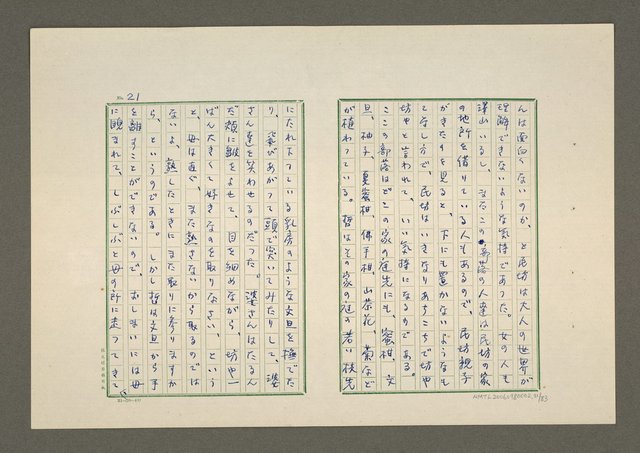 んは面白くないのか、と民坊は大人の世界が
理解できないような気持であった。女の人も
沢山いるし、またこの部落の人達は民坊の家
の地所を借りている人もあるので、民坊親子
がきたりを見ると、下にも置かないようなも
てなし方で、民坊はいきなりあちこちで坊や
坊やと言われて、いい気持になるのである。
ここの部落はどこの家の庭先にも、蜜柑、文
旦、柚子、夏蜜柑、佛手柑、山茶花、菊など
が植わっている。哲はその家の庭の若い枝先
No. 21
にたれ下っている乳房のような文旦を撫でた
り、飛びあがって頭で突いてみたりして、婆
さん達を笑わせるのだった。婆さんはたるん
だ頬に皺をよせて、目を細めながら、坊や一
ばん大きくて好きなのを取りなさい、という
と、母は直ぐ、まだ熟さないから取るのでは
ないよ、熟したときにまた取りに参りますか
ら、というのである。しかし哲は文旦から手
を離すことができないので、おしまいには母
に睨まれて、しぶしぶと母の所に走ってきて、
NMTL20060980006_21/83